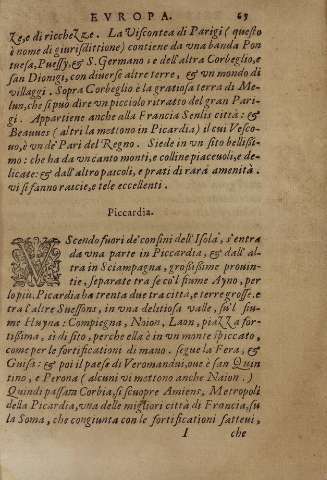 EVROPA. 65
ze, e di ricchezze. La Viscontea di Parigi (questo
è nome di giurisdittione) contiene da vna banda Pon
tuesa, Puessy, & S. Germano: e dell'altra Corbeglio, e
san Dionigi, con diuerse altre terre, & vn mondo di
villaggi. Sopra Corbeglio è la gratiosa terra di Me-
lun, che si può dire vn picciolo ritratto del gran Pari-
gi. Appartiene anche alla Francia Senlis città: &
Beauues (altri la mettono in Picardia) il cui Vesco-
uo, è vn de' Pari del Regno. Siede in vn sito bellissi-
mo: che ha da vn canto monti, e colline piaceuoli, e de-
licate: & dall'altro pascoli, e prati di rara amenità.
vi si fanno rascie, e tele eccellenti.
Piccardia.
VScendo fuori de' confini dell'Isola, s'entra
da vna parte in Piccardia, & dall'al-
tra in Sciampagna, grossissime prouin-
tie, separate tra se co'l fiume Ayno, per
lo più. Picardia ha trenta due tra città, e terre grosse. e
tra l'altre Suessons, in vna delitiosa valle, su'l fiu-
me Huyna: Compiegna, Naion, Laon, piazza for-
tissima, si di sito, perche ella è in vn monte spiccato,
come per le fortificationi di mano. segue la Fera, &
Guisa: & poi il paese di Veromandui, oue è san Quin
tino, e Perona (alcuni vi mettono anche Naion.)
Quindi passam Corbia, si scuopre Amiens, Metropoli
della Picardia, vna delle migliori città di Francia, su
la Soma, che congiunta con le fortificationi fatteui,
I che